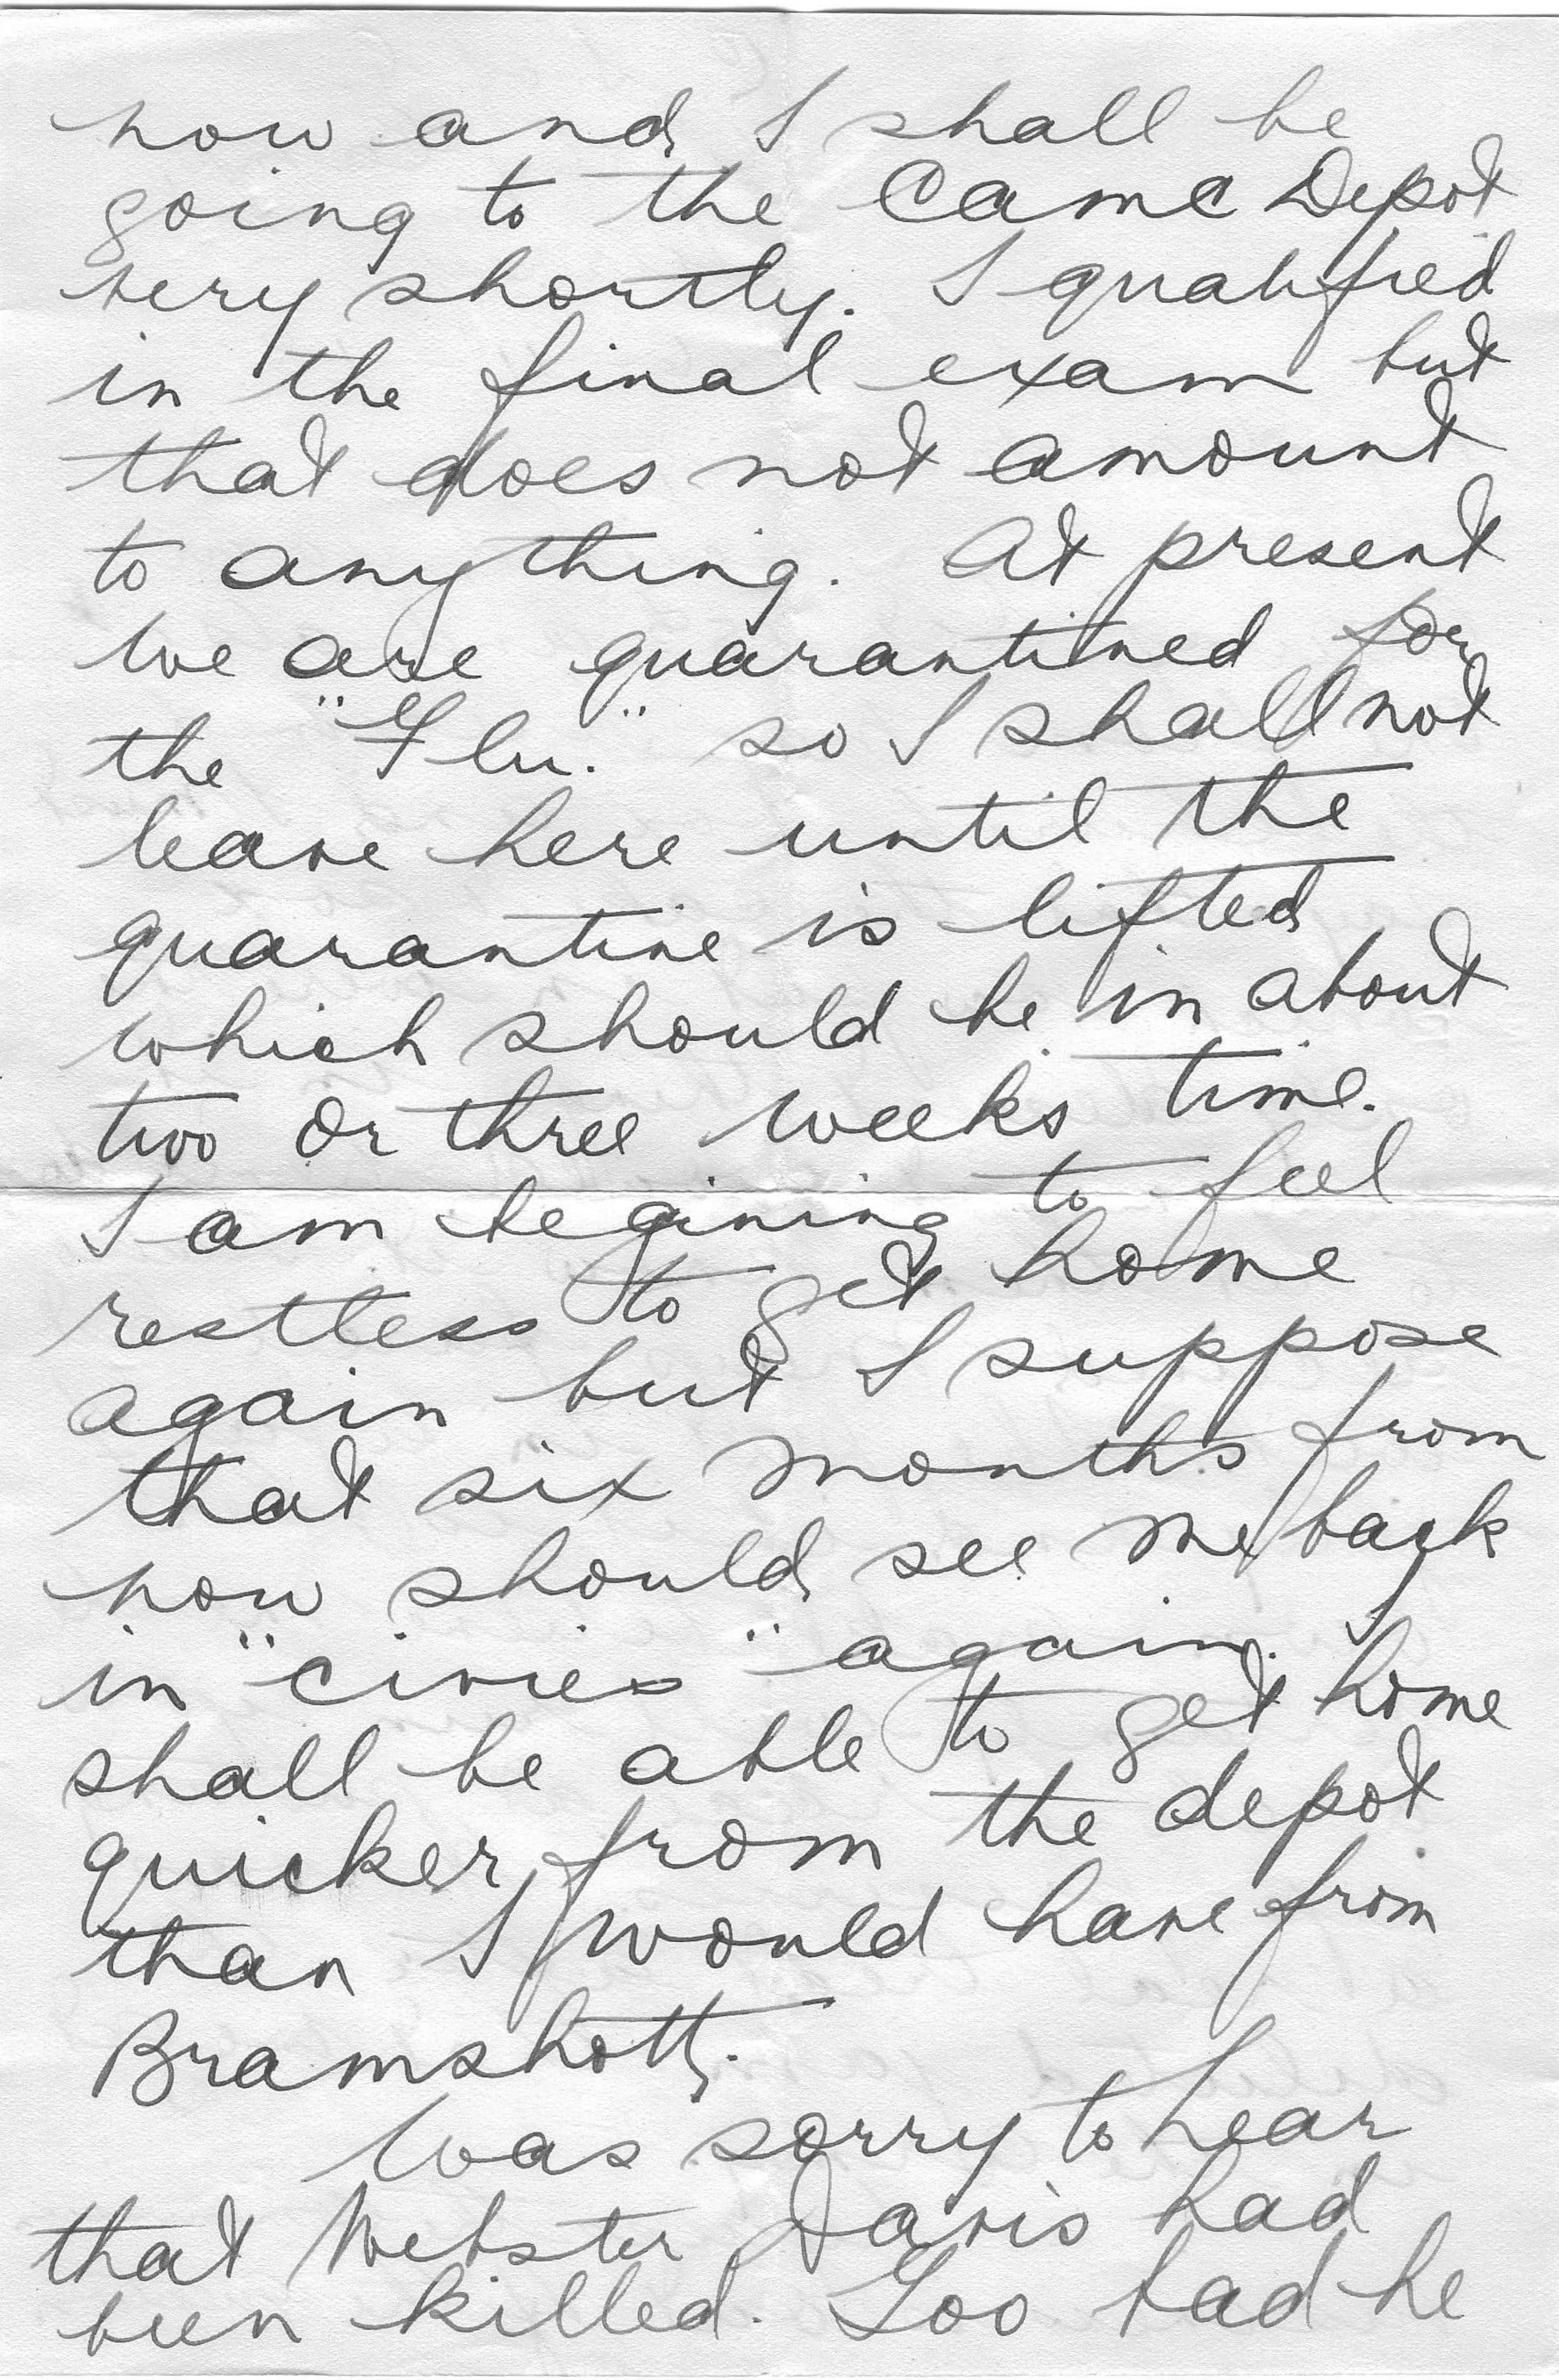 now and I shall be
going to the C.A.M.C Depot
very shortly. I qualified
in the final exam but
that does not amount
to anything. At present
we are quarantined for
the "Flu." so I shall not
leave here until the
quarantine is lifted
which should be in about
two or three weeks time.
I am begining to feel
restless to get home
again but I suppose
that six months from
now should see me back
in "civies" again. I
shall be able to get home
quicker from the depot
than I would have from
Bramshott.
Was sorry to hear
that Webster Davis had
been killed. Too bad he